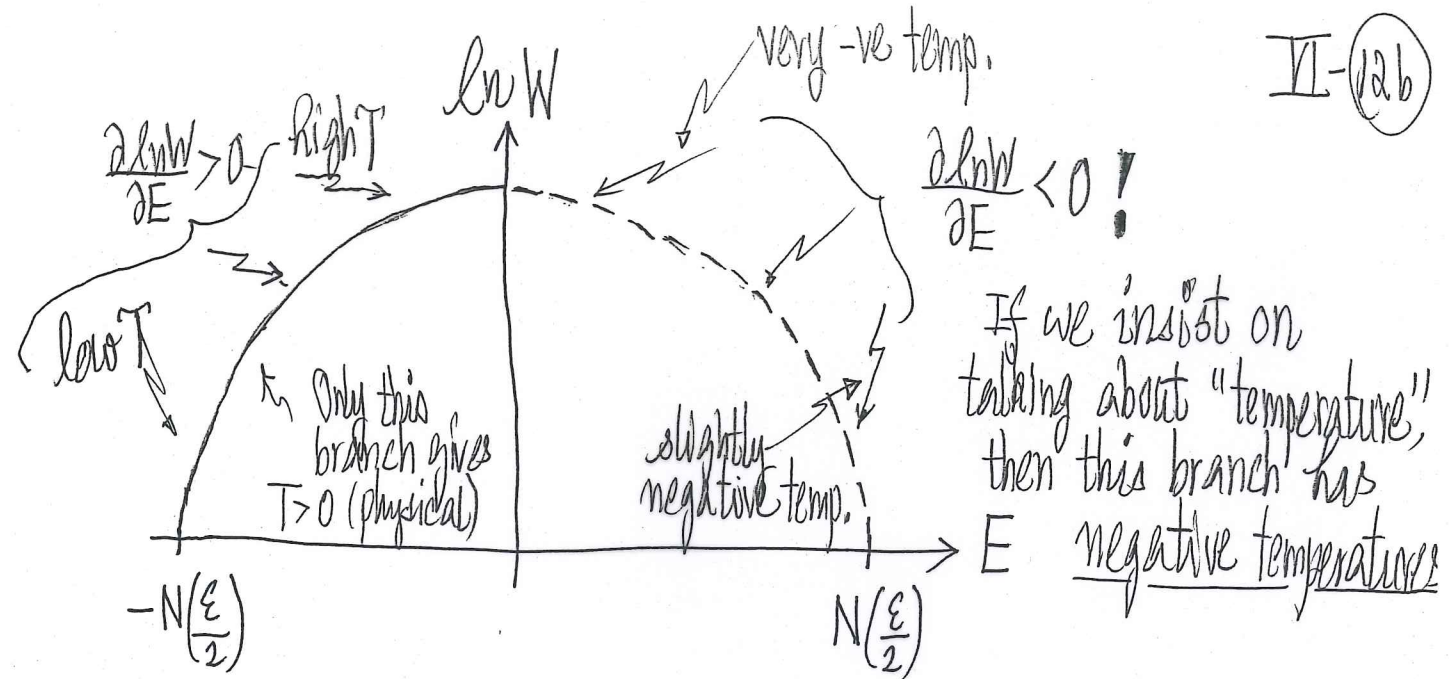 VI-12b
very -ve temp.
ln W
∂lnW/∂E > 0
high T
∂lnW/∂E < 0 !
low T
Only this
branch gives
T>0 (physical)
slightly
negative temp.
If we insist on
talking about "temperature",
then this branch has
negative temperatures
E
-N(ε/2)
N(ε/2)